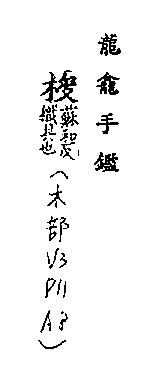 龍龕手鑑
梭蘇和反織具也(木部V3P11A8)